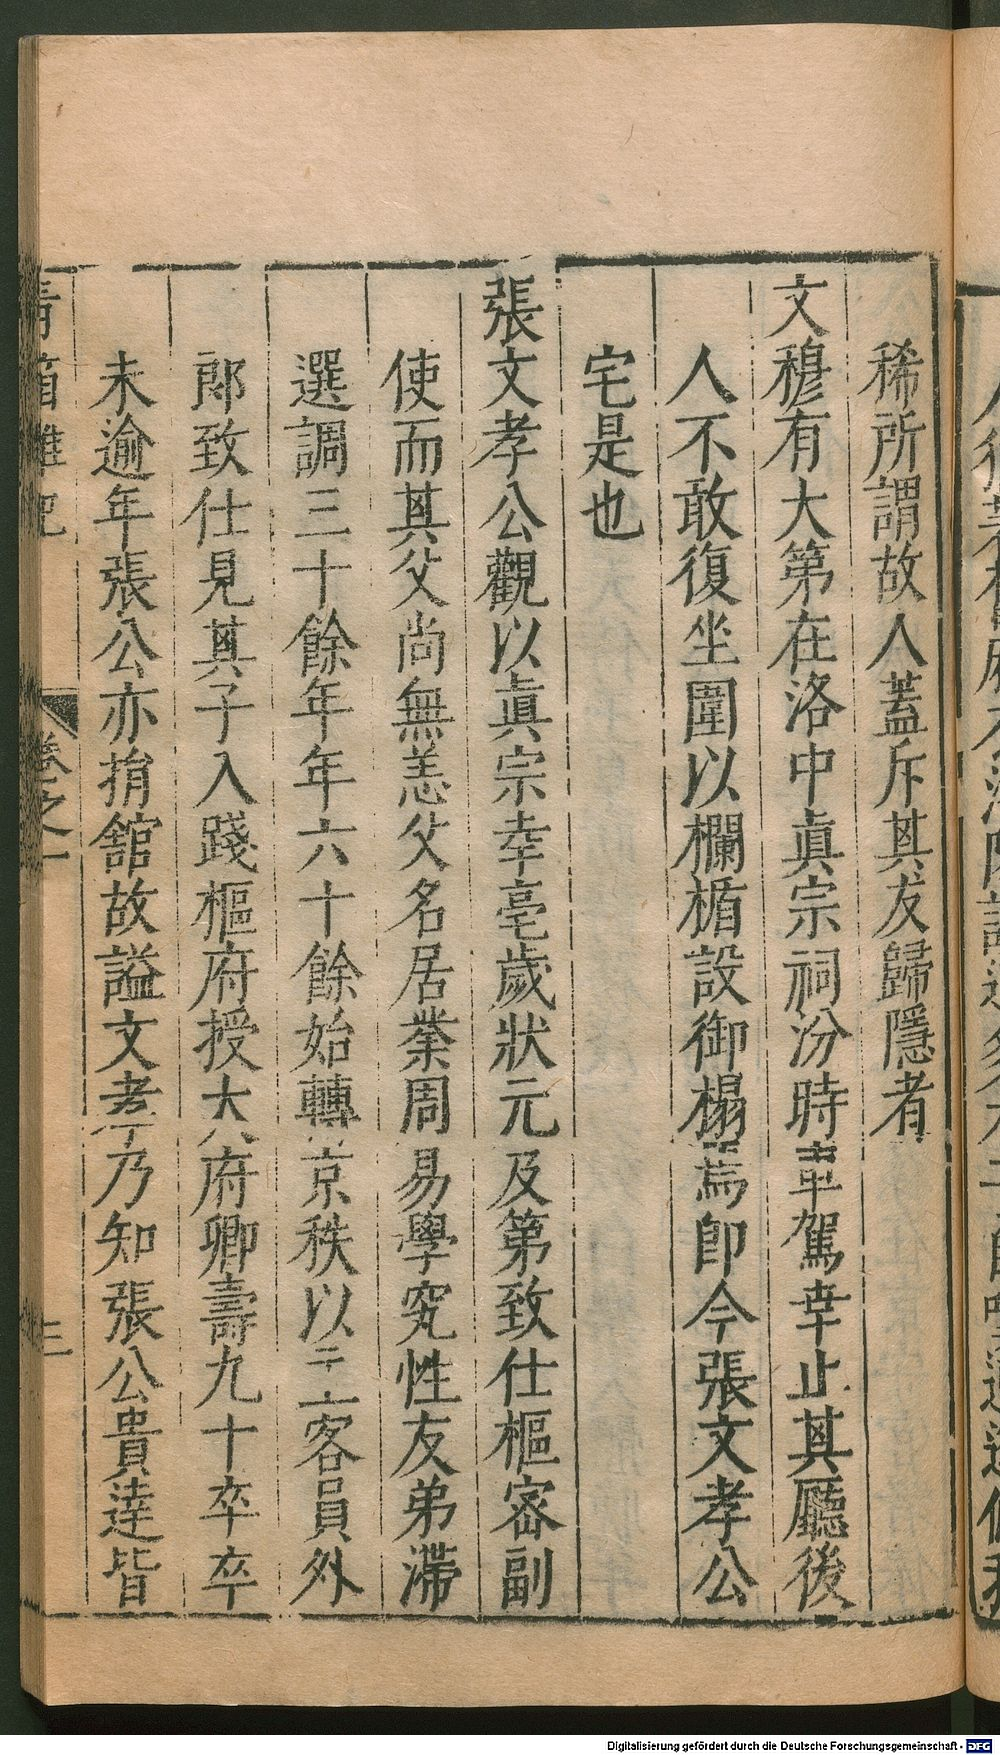 稀所謂故人蓋斥其友歸隱者
文穆有大第在洛中眞宗祠汾時車駕幸止其廳後
人不敢復坐圍以欄楯設御榻焉卽今張文孝公
宅是也
張文孝公觀以眞宗幸亳歲狀元及第致仕樞密副
使而其父尚無恙父名居業周易學究性友弟滯
選調三十餘年年六十餘始轉京秩以主客員外
郎致仕見其子入踐樞府授大府卿壽九十卒卒
未逾年張公亦捐館故謚文孝乃知張公貴達皆
青箱雜記
卷之一
三
Digitalisierung gefördert durch die Deutsche Forschungsgemeinschaft - DFG